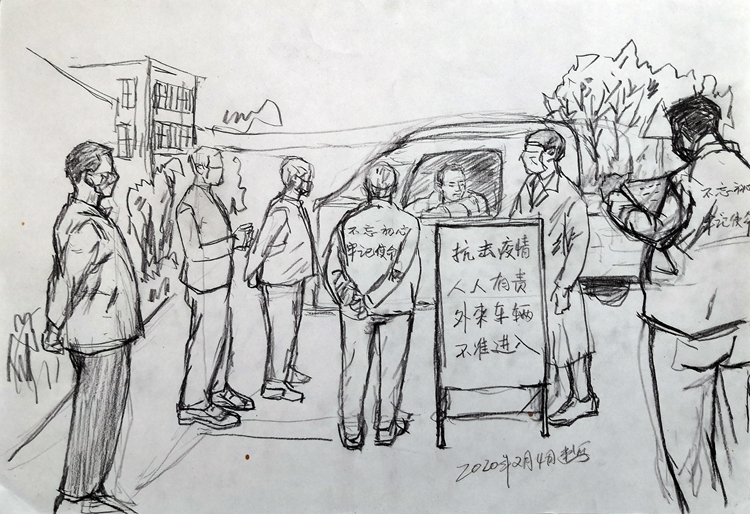 不忘初心
牢记使命
抗击疫情
人人有责
外来车辆
不准进入
不忘初
牢记使命
2020年2月4日